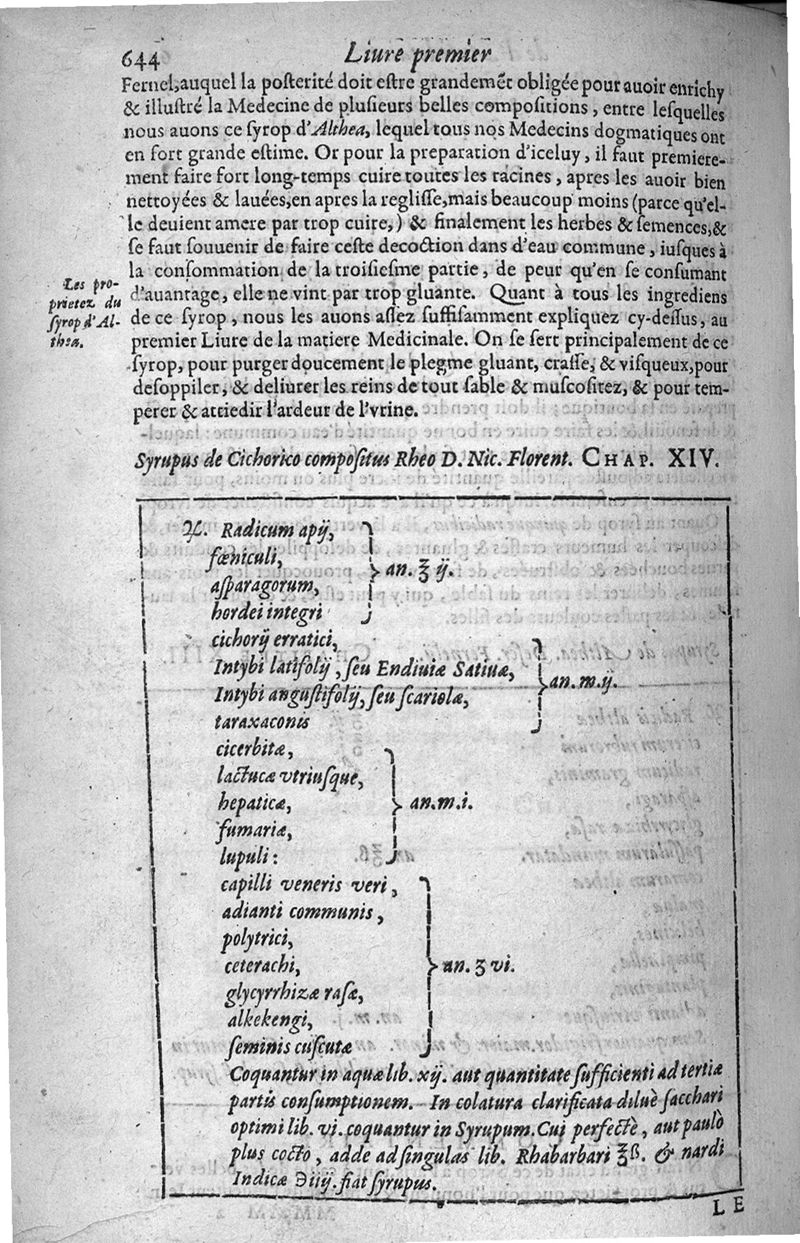 644
Liure premier
Fernel, auquel la posterité doit estre grandemẽt obligée pour auoir enrichy
& illustré la Medecine de plusieurs belles compositions, entre lesquelles
nous auons ce syrop d'Althea, lequel tous nos Medecins dogmatiques ont
en fort grande estime. Or pour la preparation d'iceluy, il faut premiere-
ment faire fort long-temps cuire toutes les racines, apres les auoir bien
nettoyées & lauées, en apres la reglisse, mais beaucoup moins (parce qu'el-
le deuient amere par trop cuire,) & finalement les herbes & semences, &
se faut souuenir de faire ceste decoction dans d'eau commune, iusques à
la consommation de la troisiesme partie, de peur qu'en se consumant
d'auantage, elle ne vint par trop gluante. Quant à tous les ingrediens
de ce syrop, nous les auons assez suffisamment expliquez cy-dessus, au
premier Liure de la matiere Medicinale. On se sert principalement de ce
syrop, pour purger doucement le plegme gluant, crasse, & visqueux, pour
desoppiler, & deliurer les reins de tout sable & muscositez, & pour tem-
perer & attiedir l'ardeur de l'vrine.
Les pro-
prietez du
syrop d'Al-
thea.
Syrupus de Cichorico compositus Rheo D. Nic. Florent. CHAP. XIV.
♃. Radicum apij,
fœniculi,
asparagorum,
hordei integri
an. ℥ ij.
cichorij erratici,
Intybi latifolij, seu Endiuiæ Satiuæ,
Intybi angustifolij, seu scariolæ,
taraxaconis
an. m. ij.
cicerbitæ,
lactucæ vtriusque,
hepaticæ,
fumariæ,
lupuli:
an. m. i.
capilli veneris veri,
adianti communis,
polytrici,
ceterachi,
glycyrrhizæ rasæ,
alkekengi,
seminis cuscutæ
an. ʒ vi.
Coquantur in aquæ lib. xij. aut quantitate sufficienti ad tertiæ
partis consumptionem. In colatura clarificata diluè sacchari
optimi lib. vi. coquantur in Syrupum. Cui perfectè, aut paulò
plus cocto, adde ad singulas lib. Rhabarbari ℥ß. & nardi
Indicæ ℈iiij. fiat syrupus.
LE